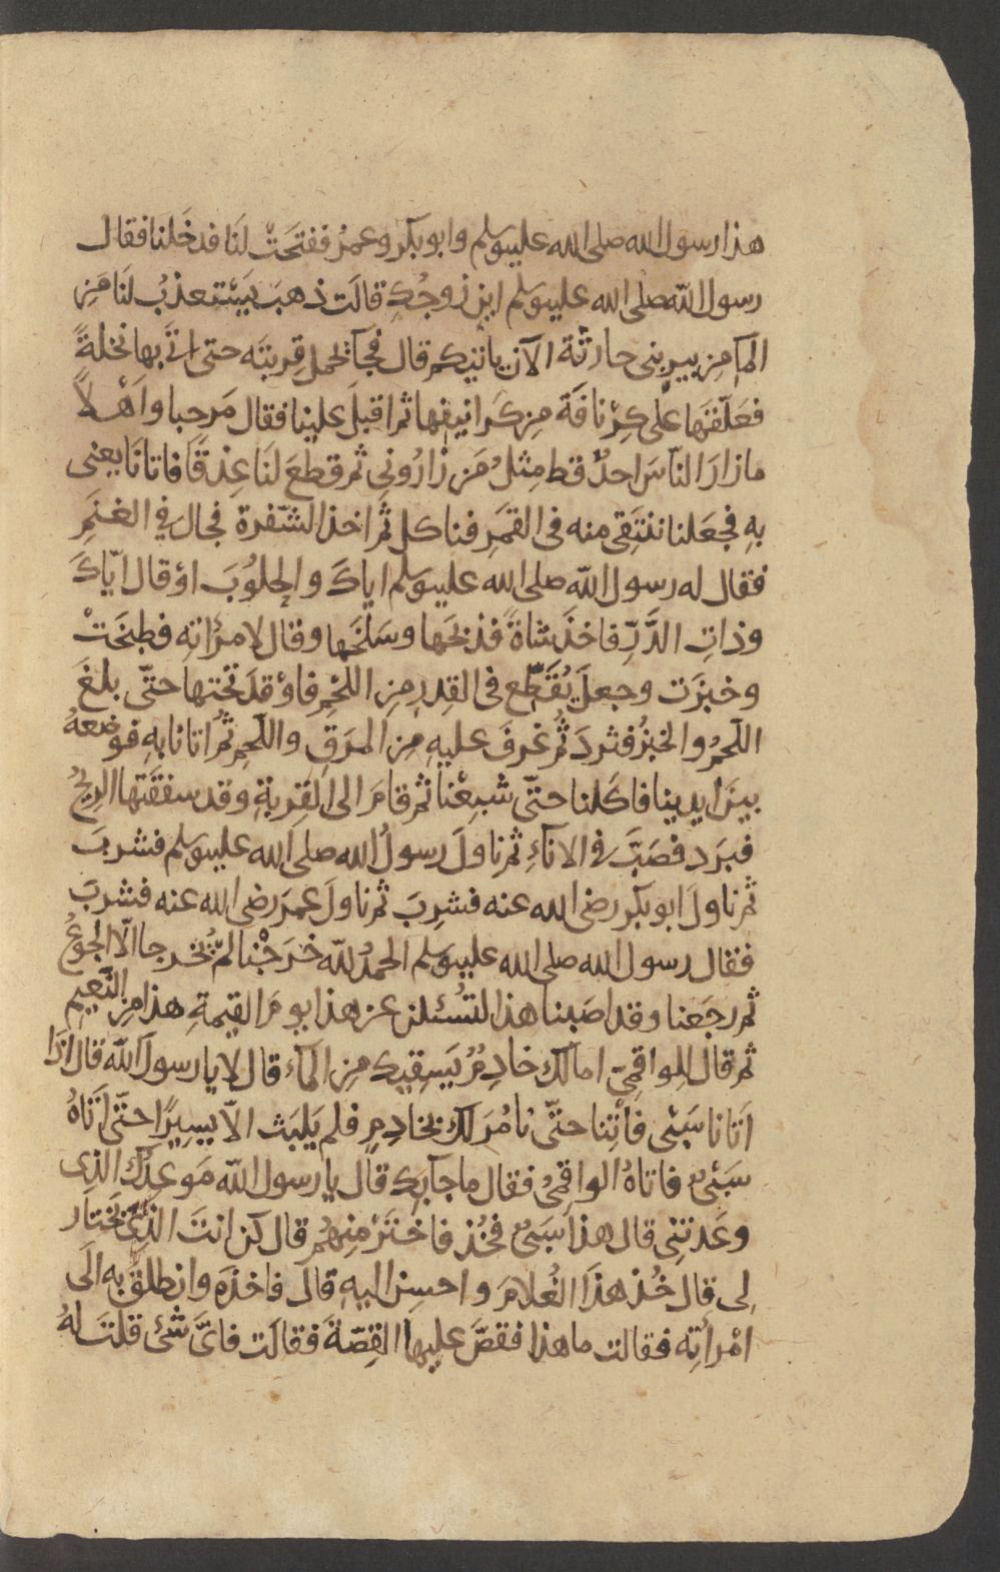 هذا رسول الله صلى الله عليه وسلم وابو بكر وعمرُ ففتحَتْ لنَا فدخَلنا فقال
رسول الله صلى الله عليه وسلم اين زوجُكِ قالَت ذهبَ يَسْتعذبُ لنَا مَن
المآءِ من بير بنى حارثة الآن ياتيكم قال فجَآءَ يحمل قِربتَه حتى اتَى بها نخلةً
فعَلّقتَها على كِرْنافَة من كَرانيفها ثم اقبلَ علينا فقال مَرحبا واَهْلاً
مازارَ الناسَ احدٌ قط مِثلُ مَن زارُونى ثم قطعَ لنَا عِذقًا فاتانَا يعنى
بهِ فجعَلنا ننتَقى منه فى القمَرِ فناكل ثم اخذ الشفرة فجال فى الغنَمِ
فقال له رسول الله صلى الله عليه وسلم اياكَ والحلوُبَ اوْ قال ايّاكَ
وذاتِ الدَّرِّ فاخذَ شاةً فذبحَها وسَلخَها وقال لامرَاتهِ فطبخَتْ
وخبزَت وجعلَ يُقَطّع فى القِدرِ من اللحْمِ فاوْقدَ تحتها حتّى بلغَ
اللحمُ والخبزُ فثردَ ثُم غرفَ عليهِ من المرَقِ واللحمِ ثمُ اتانا بهِ فوضعهُ
بينَ ايدينا فاكلنا حتّى شبِعْنا ثم قامَ الى القِربةِ وقد سفقَتها الريحُ
فبرَد فصَبَّ فى الاناءِ ثم ناولَ رسولُ الله صلى الله عليه وسلم فشربَ
ثم ناولَ ابو بكر رضى الله عنه فشرِبَ ثم ناولَ عمرَ رضى الله عنه فشربَ
فقال رسول الله صلى الله عليه وسلم الحمدُ للّه خرَجْنا لم يُخرجنا الّا الجوعُ
ثم رجَعنا وقد اصَبنا هذا لتسُئلن عن هذا يومَ القيٰمةِ هذا من النّعيم
ثم قال للواقمىّ امالكَ خادِمٌ يَسقِيكَ من المآء قال لا يا رسولَ اللّه قال اذَا
اَتانا سَبْىٌ فأتِنا حتّى نامُرَ لك بخادِمٍ فلم يَلبَث الاّ يسِيرًا حتّى اَتاهُ
سَبْىٌ فاتاهُ الواقمىُّ فقال ما جآءَ بكَ قال يا رسول اللّه مَوعِدُك الذِى
وعَدتنِى قال هذا سَبْىٌ فخُذ فاختَرْ منهُم قال كن انتَ الذِى تختار
لى قال خُذ هذَا الغُلامَ واحسِن اليهِ قال فاخذَه وانطلقَ به الَى
امْرأتِه فقالت ما هذا فقصَّ عليها القِصّةَ فقالَت فاىَّ شئ قلتَ لهُ